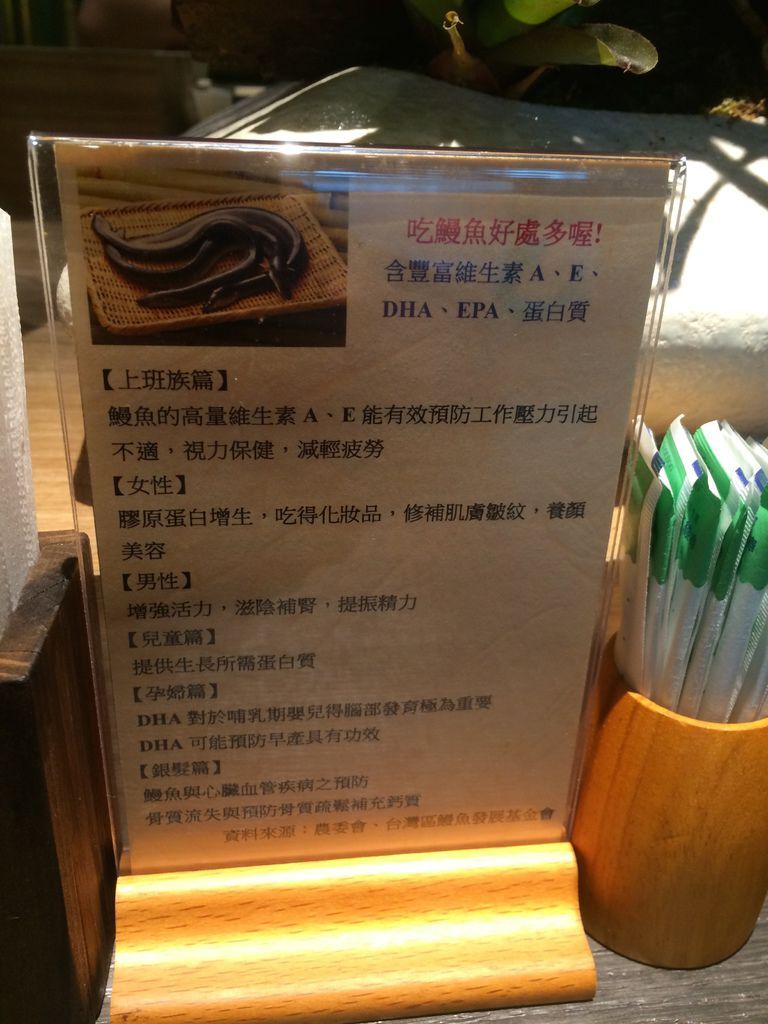 吃鰻魚好處多喔!
含豐富維生素 A、E、
DHA、EPA、蛋白質
【上班族篇】
鰻魚的高量維生素 A、E 能有效預防工作壓力引起
不適，視力保健，減輕疲勞
【女性】
膠原蛋白增生，吃得化妝品，修補肌膚皺紋，養顏
美容
【男性】
增強活力，滋陰補腎，提振精力
【兒童篇】
提供生長所需蛋白質
【孕婦篇】
DHA 對於哺乳期嬰兒得腦部發育極為重要
DHA 可能預防早產具有功效
【銀髮篇】
鰻魚與心臟血管疾病之預防
骨質流失與預防骨質疏鬆補充鈣質
資料來源：農委會、台灣區鰻魚發展基金會